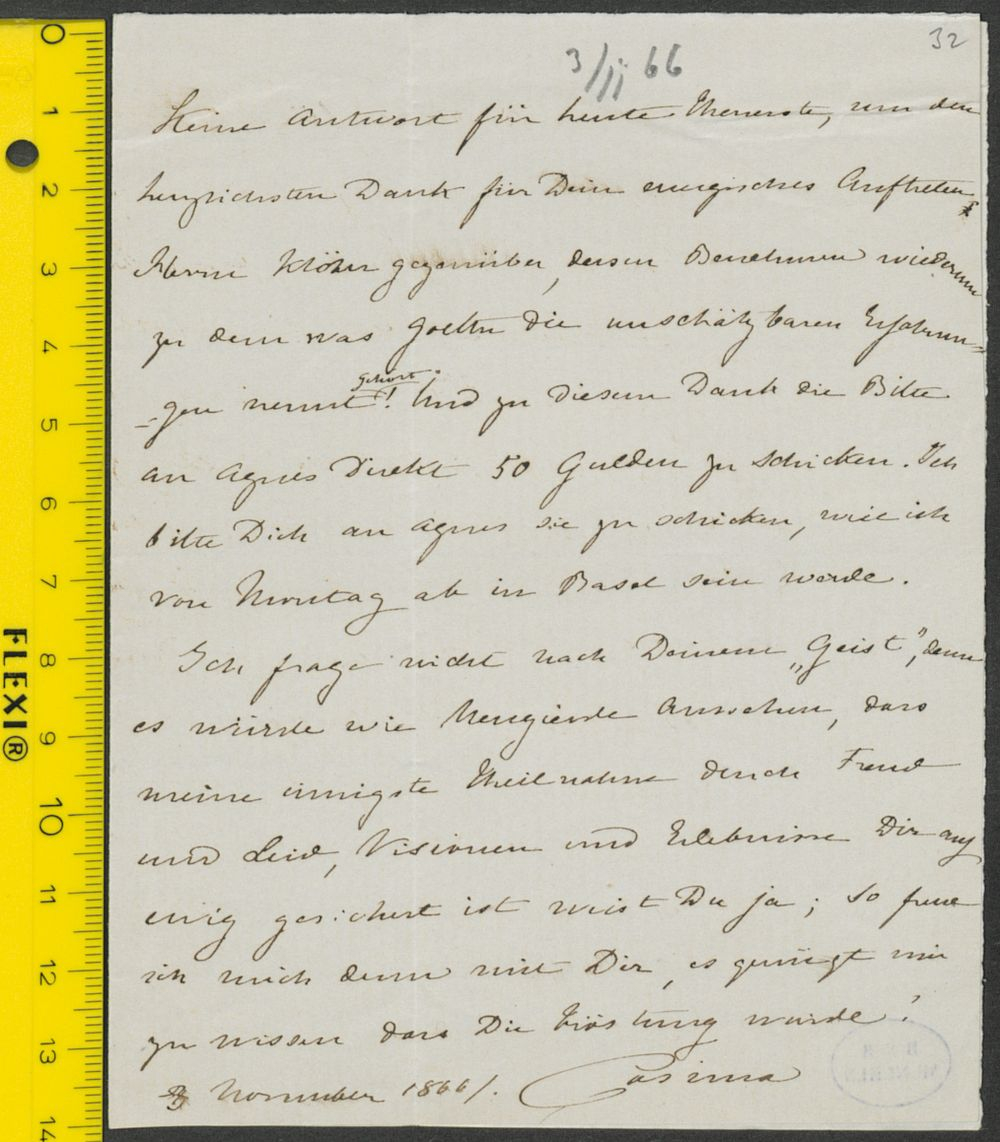 32
3/11 66
Keine Antwort für heute Theuerste, nur den
herzlichsten Dank für Dein energisches Auftreten
Herrn gegenüber, dessen Benehmen wiederum
zu dem was Goethe die unschätzbaren Erfahrun-
-gen nennt gehört! Und zu diesem Dank die Bitte
an Agnes direkt 50 Gulden zu schicken. Ich
bitte Dich an Agnes sie zu schicken, weil ich
von Montag ab in Basel sein werde.
Ich frage nicht nach Deinem „Geist", denn
es würde wie Neugierde aussehen, dass
meine innigste Theilnahme durch Freud
und Leid, Visionen und Erlebnisse Dir auf
ewig gesichert ist weist Du ja; so freue
ich mich denn mit Dir, es genügt mir
zu wissen dass Dir Tröstung wurde!
3 November 1866/. Cosima
0
1
2
3
4
5
6
7
8
9
10
11
12
13
14
FLEXI®